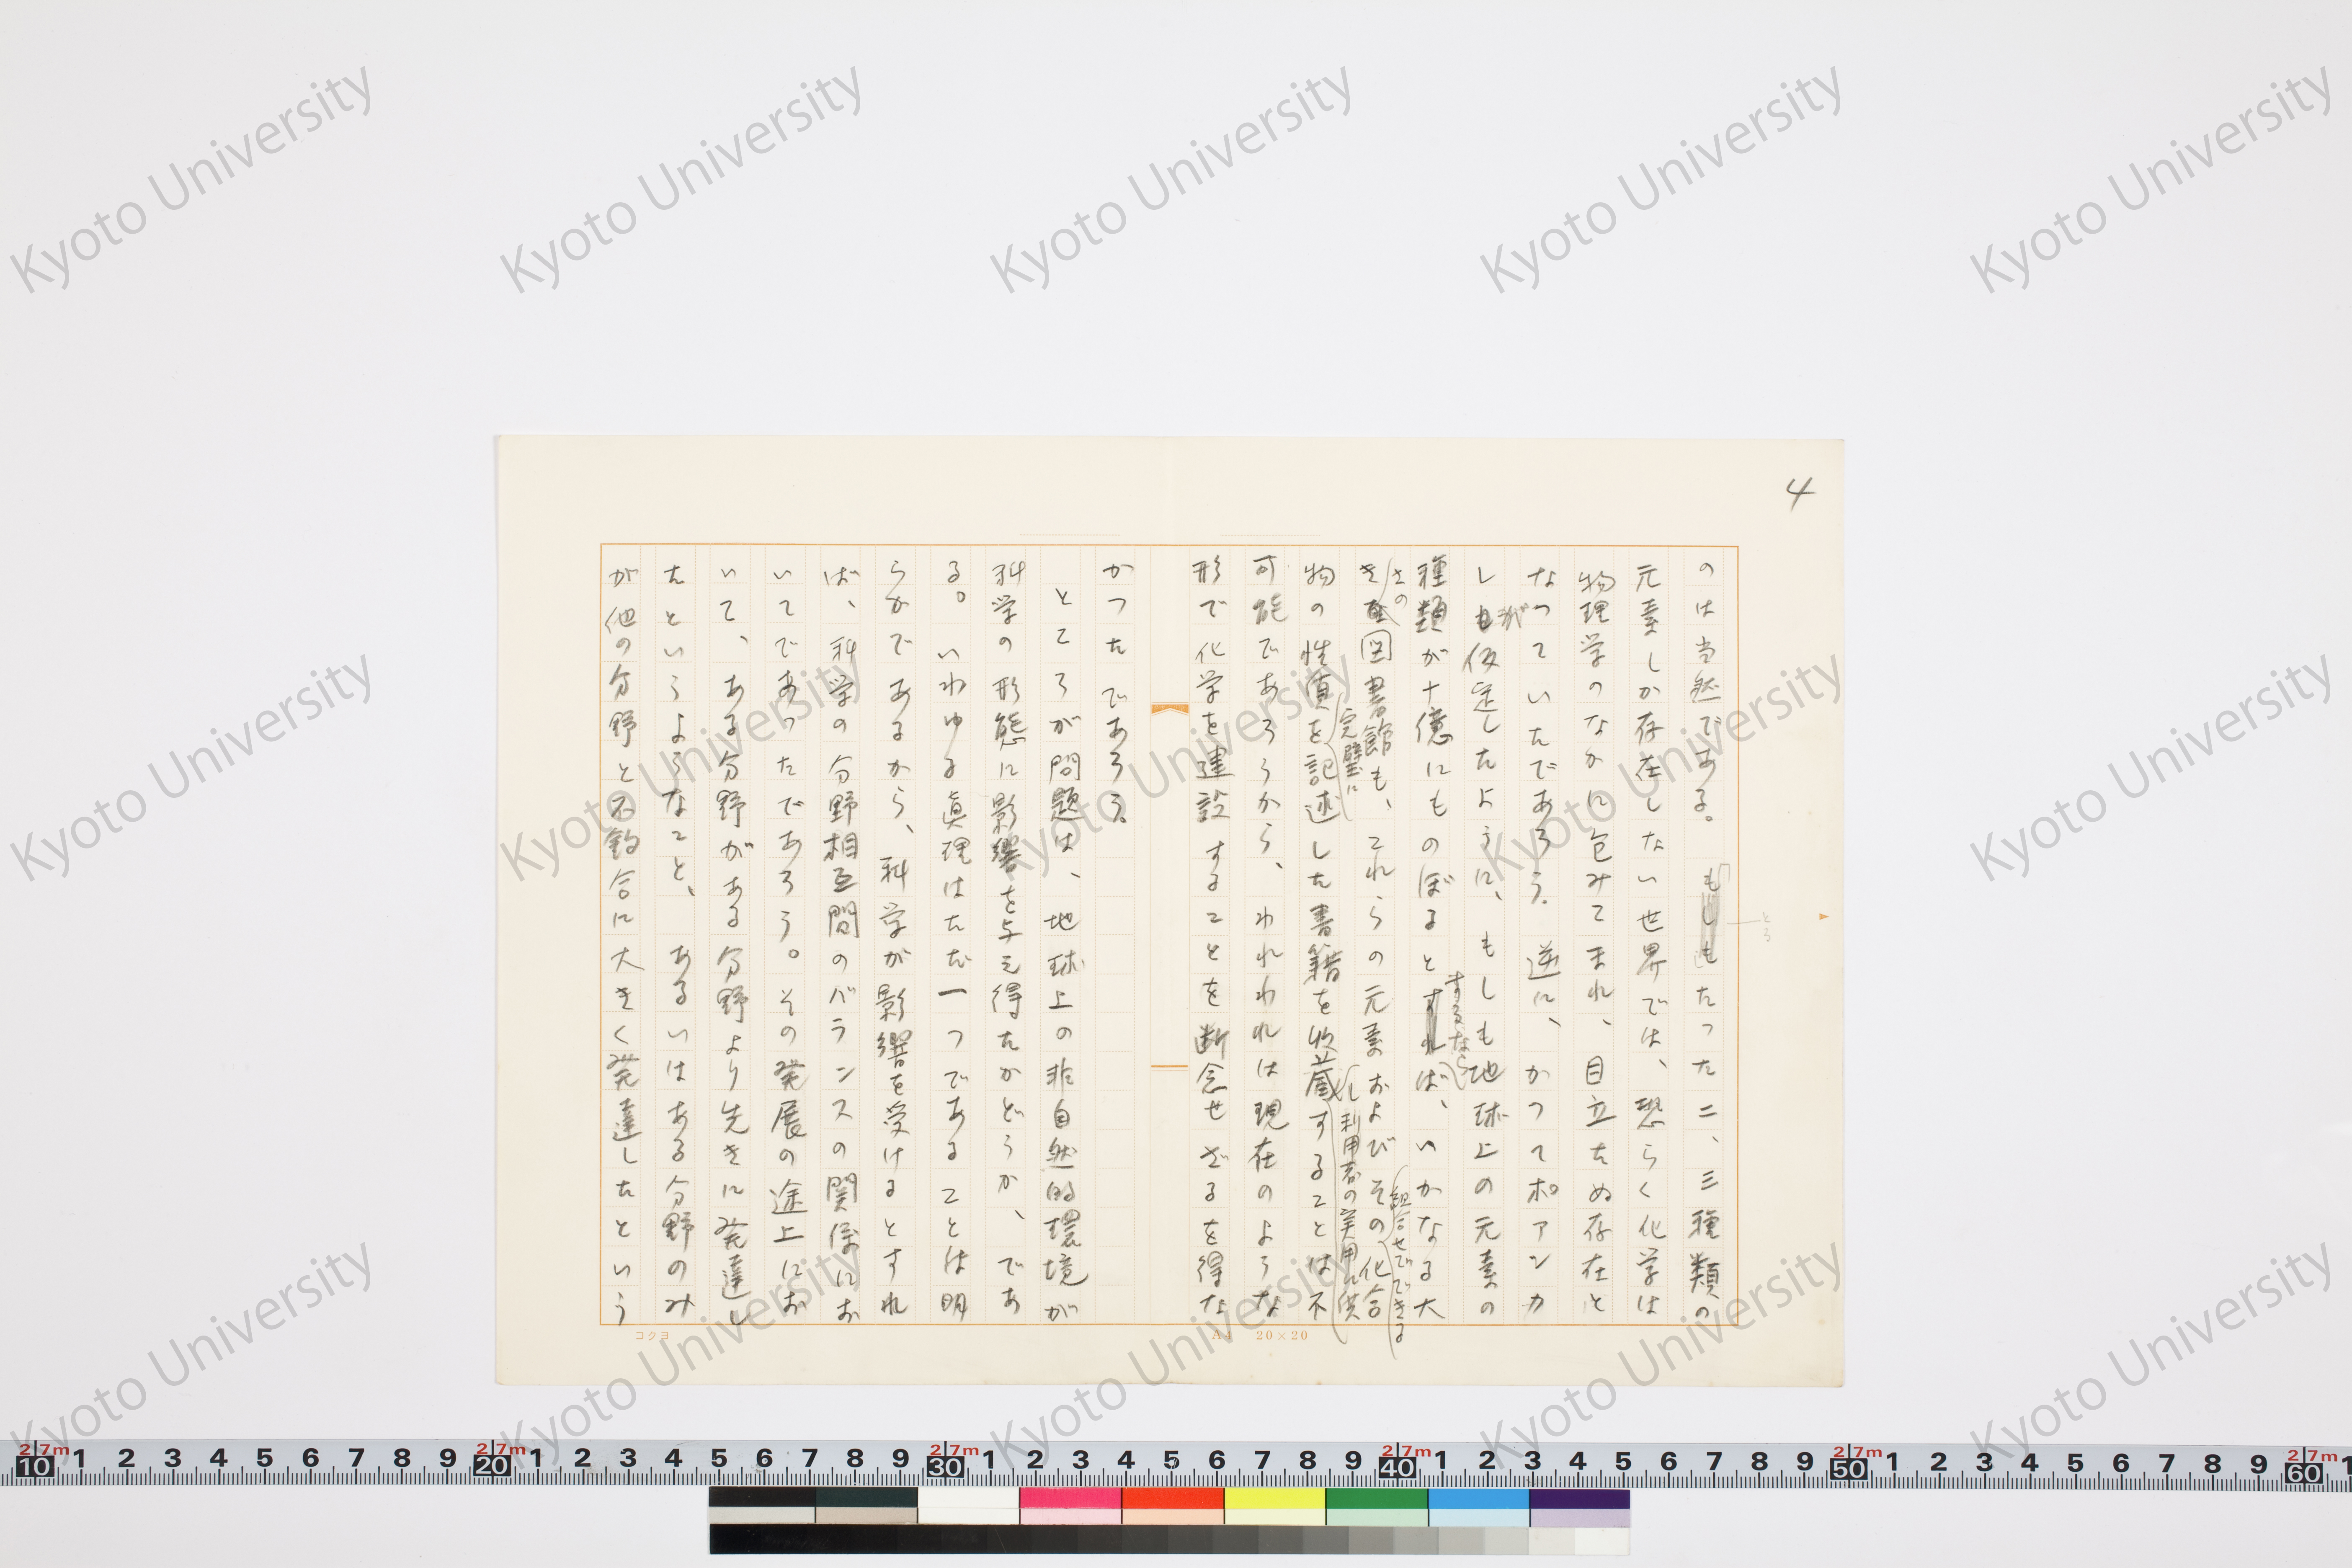 4
のは当然である。もしもたった二、三種類の
元素しか存在しない世界では、恐らく化学は
物理学のなかに包みこまれ、目立たぬ存在と
なつていたであろう。逆に、かつてポアンカ
しが仮定したように、もしも地球上の元素の
種類が十億にものぼるとするならば、いかなる大
きさの図書館も、これらの元素およびその組合せでできる化合
物の性質を完璧に記述した書籍を收蔵し利用者の実用に供することは不
可能であろうから、われわれは現在のような
形で化学を建設することを断念せざるを得な
かつたであろう。
ところが問題は、地球上の非自然的環境が
科学の形態に影響を与え得たかどうか、であ
る。いわゆる眞理はただ一つであることは明
らかであるから、科学が影響を受けるとすれ
ば、科学の分野相互間のバランスの関係にお
いてであったであろう。その発展の途上にお
いて、ある分野がある分野より先きに発達し
たというようなこと、あるいはある分野のみ
が他の分野と不釣合に大きく発達したという
コクヨ
A4 20×20
Kyoto University